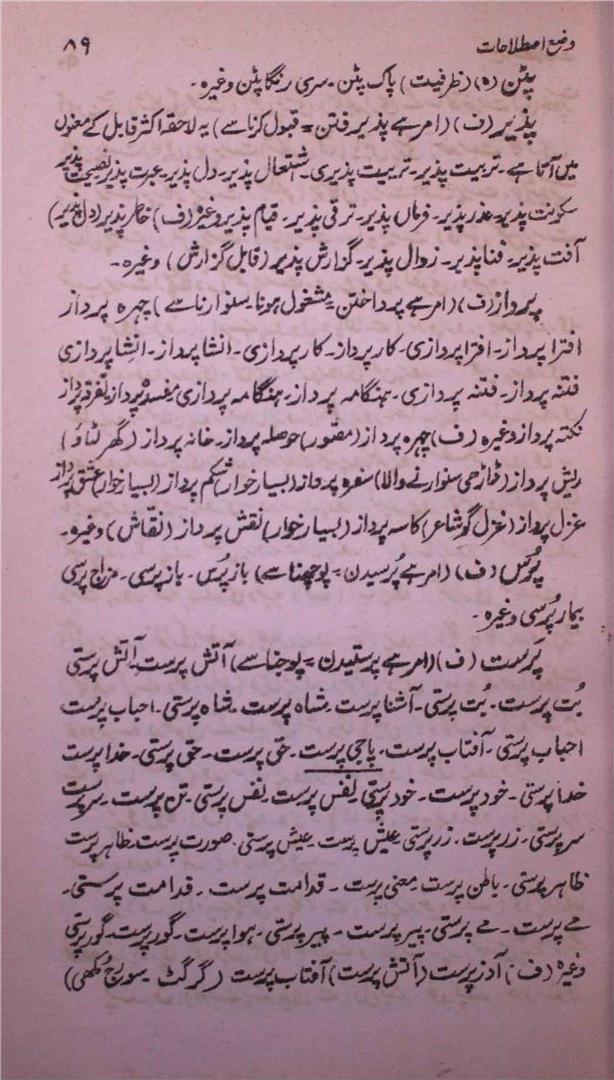 وضع اصطلاحات ۸۹
پٹن (ہ) (ظرفیت) پاک پٹن ۔ سری رنگا پٹن وغیرہ ۔
پذیر (ف) (امر ہے پذیرفتن = قبول کرنا سے) یہ لاحقہ اکثر قابل کے مفہوم
میں آتا ہے ۔ تربیت پذیر ۔ تربیت پذیری ۔ اشتعال پذیر ۔ دل پذیر ۔ عبرت پذیر نصیحت پذیر
سکونت پذیر ۔ عذر پذیر ۔ فرماں پذیر ۔ ترقی پذیر ۔ قیام پذیر وغیرہ (ف) خاطر پذیر (دل پذیر)
آفت پذیر ۔ فنا پذیر ۔ زوال پذیر ۔ گزارش پذیر (قابل گزارش) وغیرہ ۔
پرداز (ف) (امر ہے پرداختن = مشغول ہونا ۔ سنوارنا سے) چہرہ پرداز
افترا پرداز ۔ افترا پردازی ۔ کار پرداز ۔ کار پردازی ۔ انشا پرداز ۔ انشا پردازی
فتنہ پرداز ۔ فتنہ پردازی ۔ ہنگامہ پرداز ۔ ہنگامہ پردازی مفسدہ پرداز ۔ تفرقہ پرداز
نکتہ پرداز وغیرہ (ف) چہرہ پرداز (مصور) حوصلہ پرداز ۔ خانہ پرداز (گھر لٹاؤ)
ریش پرداز (ڈاڑھی سنوارنے والا) سفرہ پرداز (بسیار خوار) شکم پرداز (بسیار خوار) عشق پرداز
غزل پرداز (غزل گو شاعر) کاسہ پرداز (بسیار خوار) نقش پرداز (نقاش) وغیرہ ۔
پُرس (ف) (امر ہے پُرسیدن = پوچھنا سے) باز پُرس ۔ باز پرسی ۔ مزاج پرسی
بیمار پُرسی وغیرہ ۔
پَرست (ف) (امر ہے پرستیدن = پوجنا سے) آتش پرست ۔ آتش پرستی
بُت پرست ۔ بُت پرستی ۔ آشنا پرست ۔ شاہ پرست ۔ شاہ پرستی ۔ احباب پرست
احباب پرستی ۔ آفتاب پرست ۔ پاجی پرست ۔ حق پرست ۔ حق پرستی ۔ خدا پرست
خدا پرستی ۔ خود پرست ۔ خود پرستی ۔ نفس پرست ۔ نفس پرستی ۔ تن پرست ۔ سرپرست
سرپرستی ۔ زر پرست ۔ زر پرستی ۔ عیش پرست ۔ عیش پرستی ۔ صورت پرست ۔ ظاہر پرست
ظاہر پرستی ۔ باطن پرست ۔ معنی پرست ۔ قدامت پرست ۔ قدامت پرستی ۔
مے پرست ۔ مے پرستی ۔ پیر پرست ۔ پیر پرستی ۔ ہوا پرست ۔ گور پرست ۔ گور پرستی
وغیرہ (ف) آذر پرست (آتش پرست) آفتاب پرست (گرگٹ ۔ سورج مُکھی)